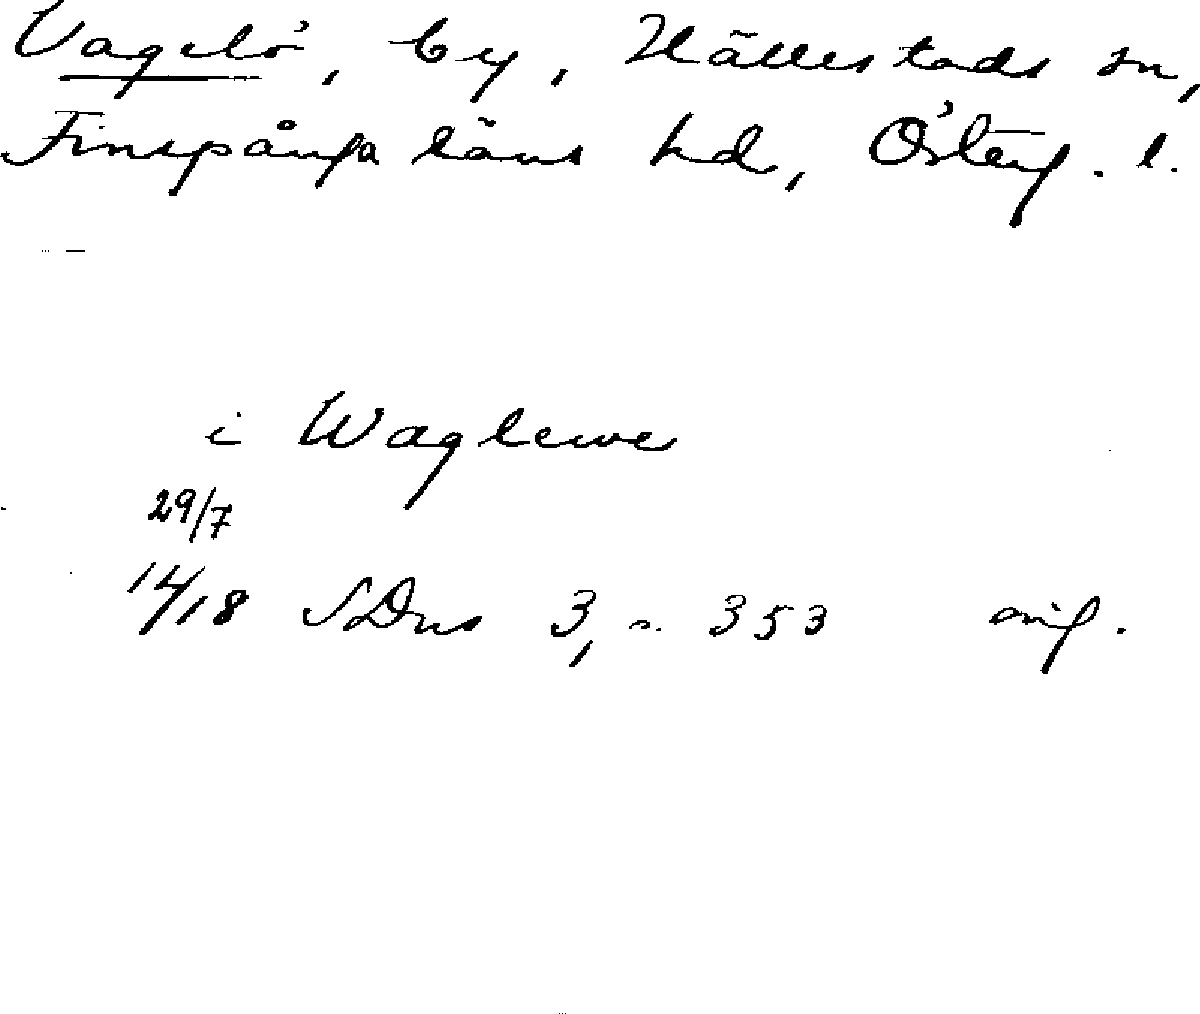 Vagelö, by, Hällestads sn,
Finspånga läns hd, Österg. l.
i Waglewe
29/7
14/18 SDns 3, s. 353 orig.